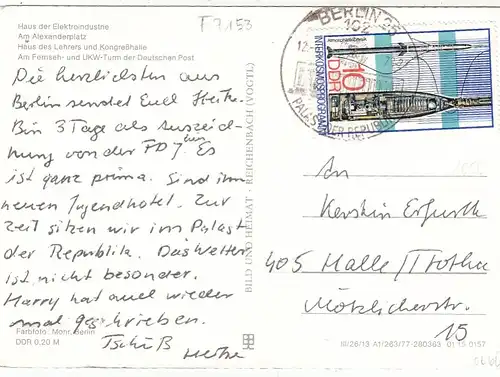 Haus der Elektroindustrie
Am Alexanderplatz
Haus des Lehrers und Kongreßhalle
Am Fernseh- und UKW-Turm der Deutschen Post
T 7153
Die herzlichsten aus
Berlin sendet Euch
Bin 3 Tage als Auszeich-
nung von der FDJ hier. Es
ist ganz prima. Sind im
neuen Jugendhotel. Zur
Zeit sitzen wir im Palast
der Republik. Das Wetter
ist nicht besonders.
Harry hat auch wieder
mal geschrieben.
Tschüß
Farbfoto: Mohr, Berlin
DDR 0,20 M
BILD UND HEIMAT · REICHENBACH (VOGTL)
BERLIN 25
102
12.
PALAST DER REPUBLIK
INTERKOSMOSPROGRAMM
DDR
10
An
Kerstin Erfurth
405 Halle/Trotha
Mötzlicherstr.
15
III/26/13 A1/263/77-280363 01 15 0157